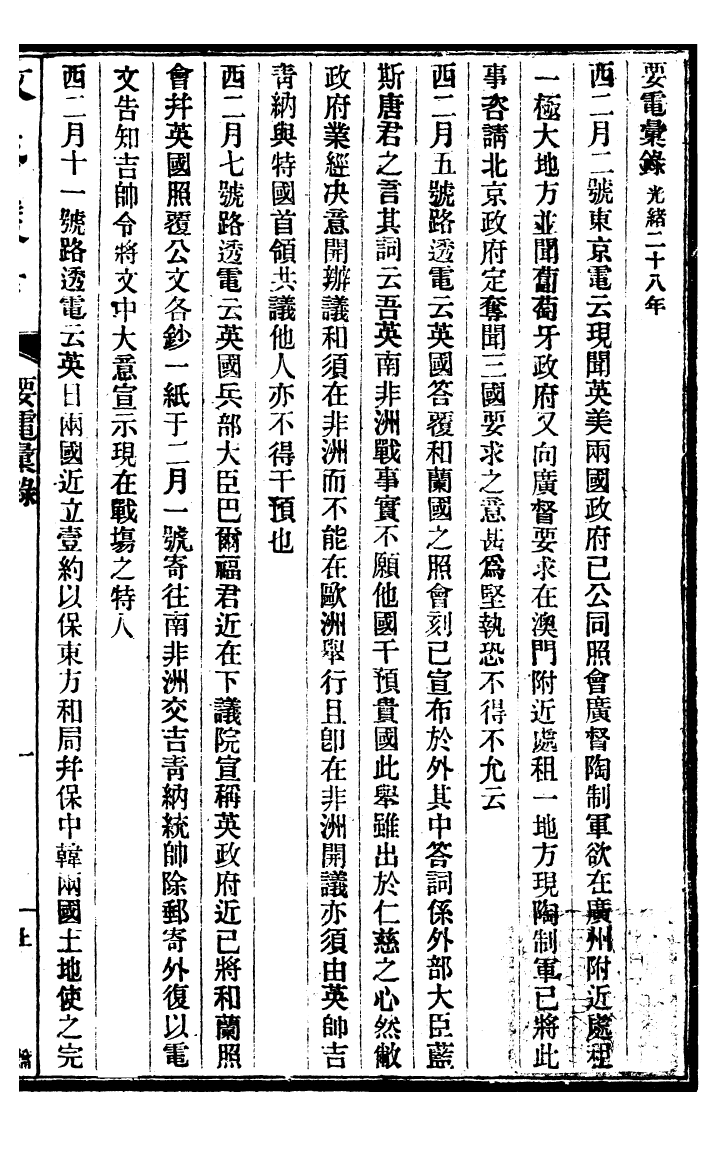 要電彙錄 光緒二十八年
西二月二號東京電云現聞英美兩國政府已公同照會廣督陶制軍欲在廣州附近處租
一極大地方並聞葡萄牙政府又向廣督要求在澳門附近處租一地方現陶制軍已將此
事咨請北京政府定奪聞三國要求之意甚爲堅執恐不得不允云
西二月五號路透電云英國答覆和蘭國之照會刻已宣布於外其中答詞係外部大臣藍
斯唐君之言其詞云吾英南非洲戰事實不願他國干預貴國此舉雖出於仁慈之心然敝
政府業經决意開辦議和須在非洲而不能在歐洲舉行且卽在非洲開議亦須由英帥吉
青納與特國首領共議他人亦不得干預也
西二月七號路透電云英國兵部大臣巴爾福君近在下議院宣稱英政府近已將和蘭照
會幷英國照覆公文各鈔一紙于二月一號寄往南非洲交吉青納統帥除郵寄外復以電
文告知吉帥令將文中大意宣示現在戰塲之特人
西二月十一號路透電云英日兩國近立壹約以保東方和局幷保中韓兩國土地使之完
要電彙錄
一